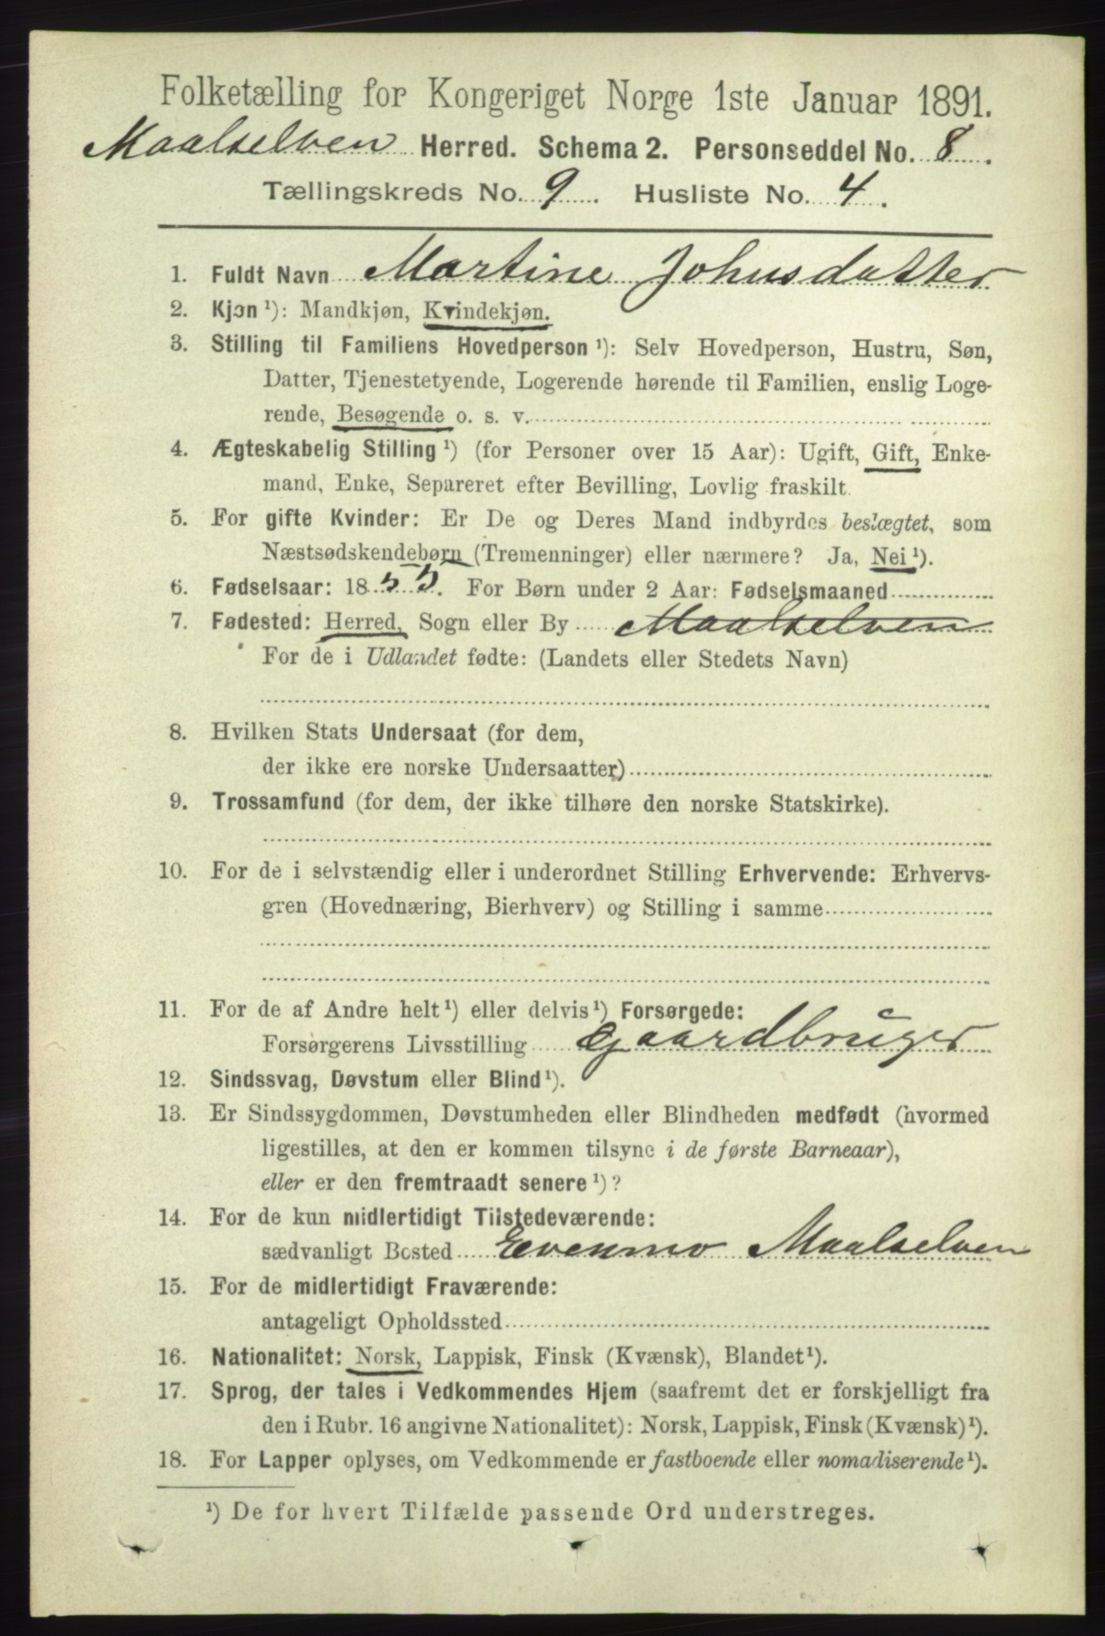 Folketælling for Kongeriget Norge 1ste Januar 1891.
Maalselven Herred. Schema 2. Personseddel No. 8.
Tællingskreds No. 9. Husliste No. 4.
1. Fuldt Navn Martine Johnsdatter
2. Kjøn ¹): Mandkjøn, Kvindekjøn.
3. Stilling til Familiens Hovedperson ¹): Selv Hovedperson, Hustru, Søn,
Datter, Tjenestetyende, Logerende hørende til Familien, enslig Loge-
rende, Besøgende o. s. v.
4. Ægteskabelig Stilling ¹) (for Personer over 15 Aar): Ugift, Gift, Enke-
mand, Enke, Separeret efter Bevilling, Lovlig fraskilt.
5. For gifte Kvinder: Er De og Deres Mand indbyrdes beslægtet, som
Næstsødskendebørn (Tremenninger) eller nærmere? Ja, Nei ¹).
6. Fødselsaar: 1855. For Børn under 2 Aar: Fødselsmaaned
7. Fødested: Herred, Sogn eller By Maalselven
For de i Udlandet fødte: (Landets eller Stedets Navn)
8. Hvilken Stats Undersaat (for dem,
der ikke ere norske Undersaatter)
9. Trossamfund (for dem, der ikke tilhøre den norske Statskirke).
10. For de i selvstændig eller i underordnet Stilling Erhvervende: Erhvervs-
gren (Hovednæring, Bierhverv) og Stilling i samme
11. For de af Andre helt ¹) eller delvis ¹) Forsørgede:
Forsørgerens Livsstilling Gaardbruger
12. Sindssvag, Døvstum eller Blind ¹).
13. Er Sindssygdommen, Døvstumheden eller Blindheden medfødt (hvormed
ligestilles, at den er kommen tilsyne i de første Barneaar),
eller er den fremtraadt senere ¹)?
14. For de kun midlertidigt Tilstedeværende:
sædvanligt Bosted Evenmo Maalselven
15. For de midlertidigt Fraværende:
antageligt Opholdssted
16. Nationalitet: Norsk, Lappisk, Finsk (Kvænsk), Blandet ¹).
17. Sprog, der tales i Vedkommendes Hjem (saafremt det er forskjelligt fra
den i Rubr. 16 angivne Nationalitet): Norsk, Lappisk, Finsk (Kvænsk) ¹).
18. For Lapper oplyses, om Vedkommende er fastboende eller nomadiserende ¹).
¹) De for hvert Tilfælde passende Ord understreges.